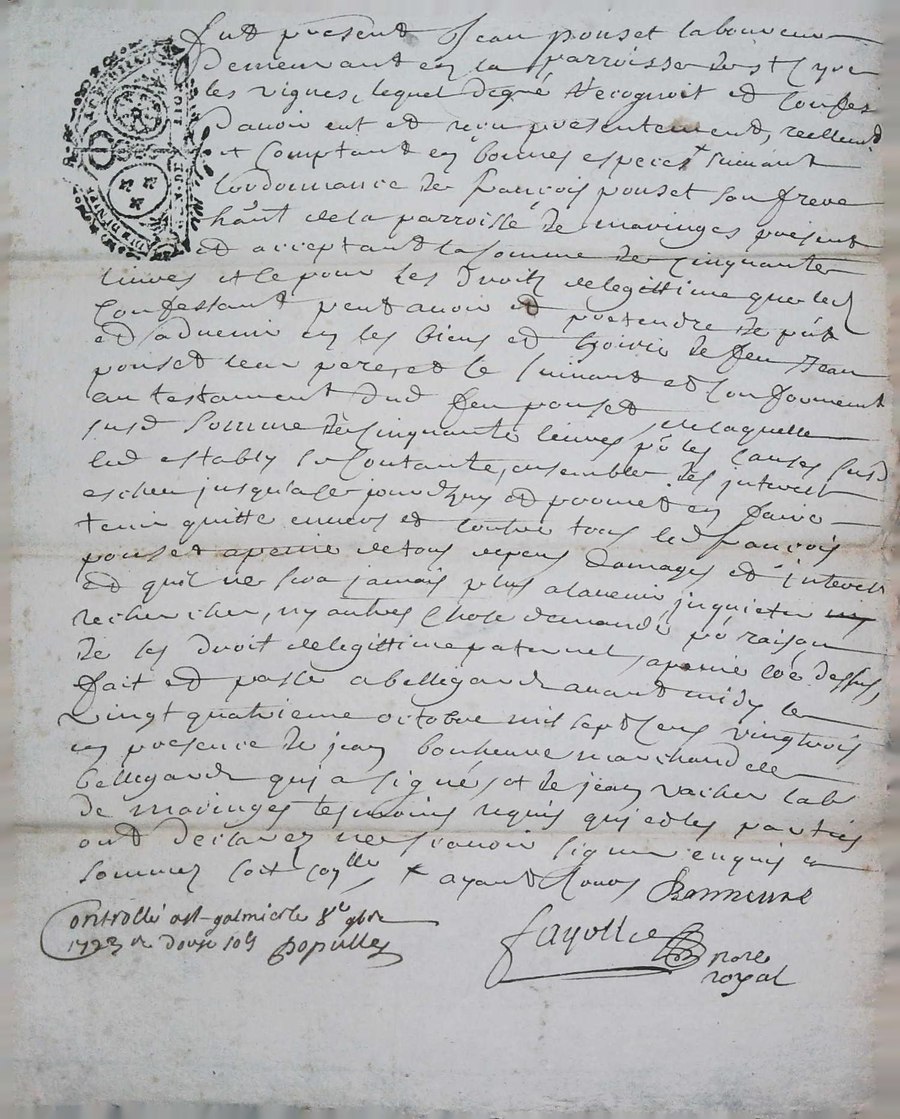 fut présent Jean ponset laboureur
demeurant en la parroisse de st Cyre
les vignes, lequel degré Recognoit et confes
d'avoir eut et reçu présentement, reellemt
et comptant en bonnes especes suivant
l'ordonnance de françois ponset son frere
habt de la parroisse de maringes présent
et acceptant la somme de cinquante
livres et ce pour les droits de legittime que led
confessant peut avoir et pretendre de pnt
et advenir en les biens et hoirie de feu Jean
ponset leur pere, et ce suivant et conformemt
au testament dud feu ponset de laquelle
susd somme de cinquante livres pr les causes susd
led estably se contante, ensemble des interest
escheu jusqu'a ce jourdhuy et promet en faire
tenir quitte envers et contre tous led françois
ponset a peine de tous depens damages et interest
et qu'il ne sera jamais plus a l'avenir inquieter ny
rechercher, ny autres chose demandé pr raison
de ses droit de legittime paternel, a peine coe dessus,
fait et passé a bellegarde avant midy le
vingt quatrieme octobre mil sept cens vingt trois
en presence de jean bonneune marchand de
bellegarde qui a signé, et de jean vacher labr
de maringes tesmoins requis qui et les parties
ont declarez ne scavoir signer enquis et
sommez soit coyllé + ayant cours Bonneune
Controllé a st galmier le 8e 9bre
1723 R douze sols popullez
fayolle
nore
royal